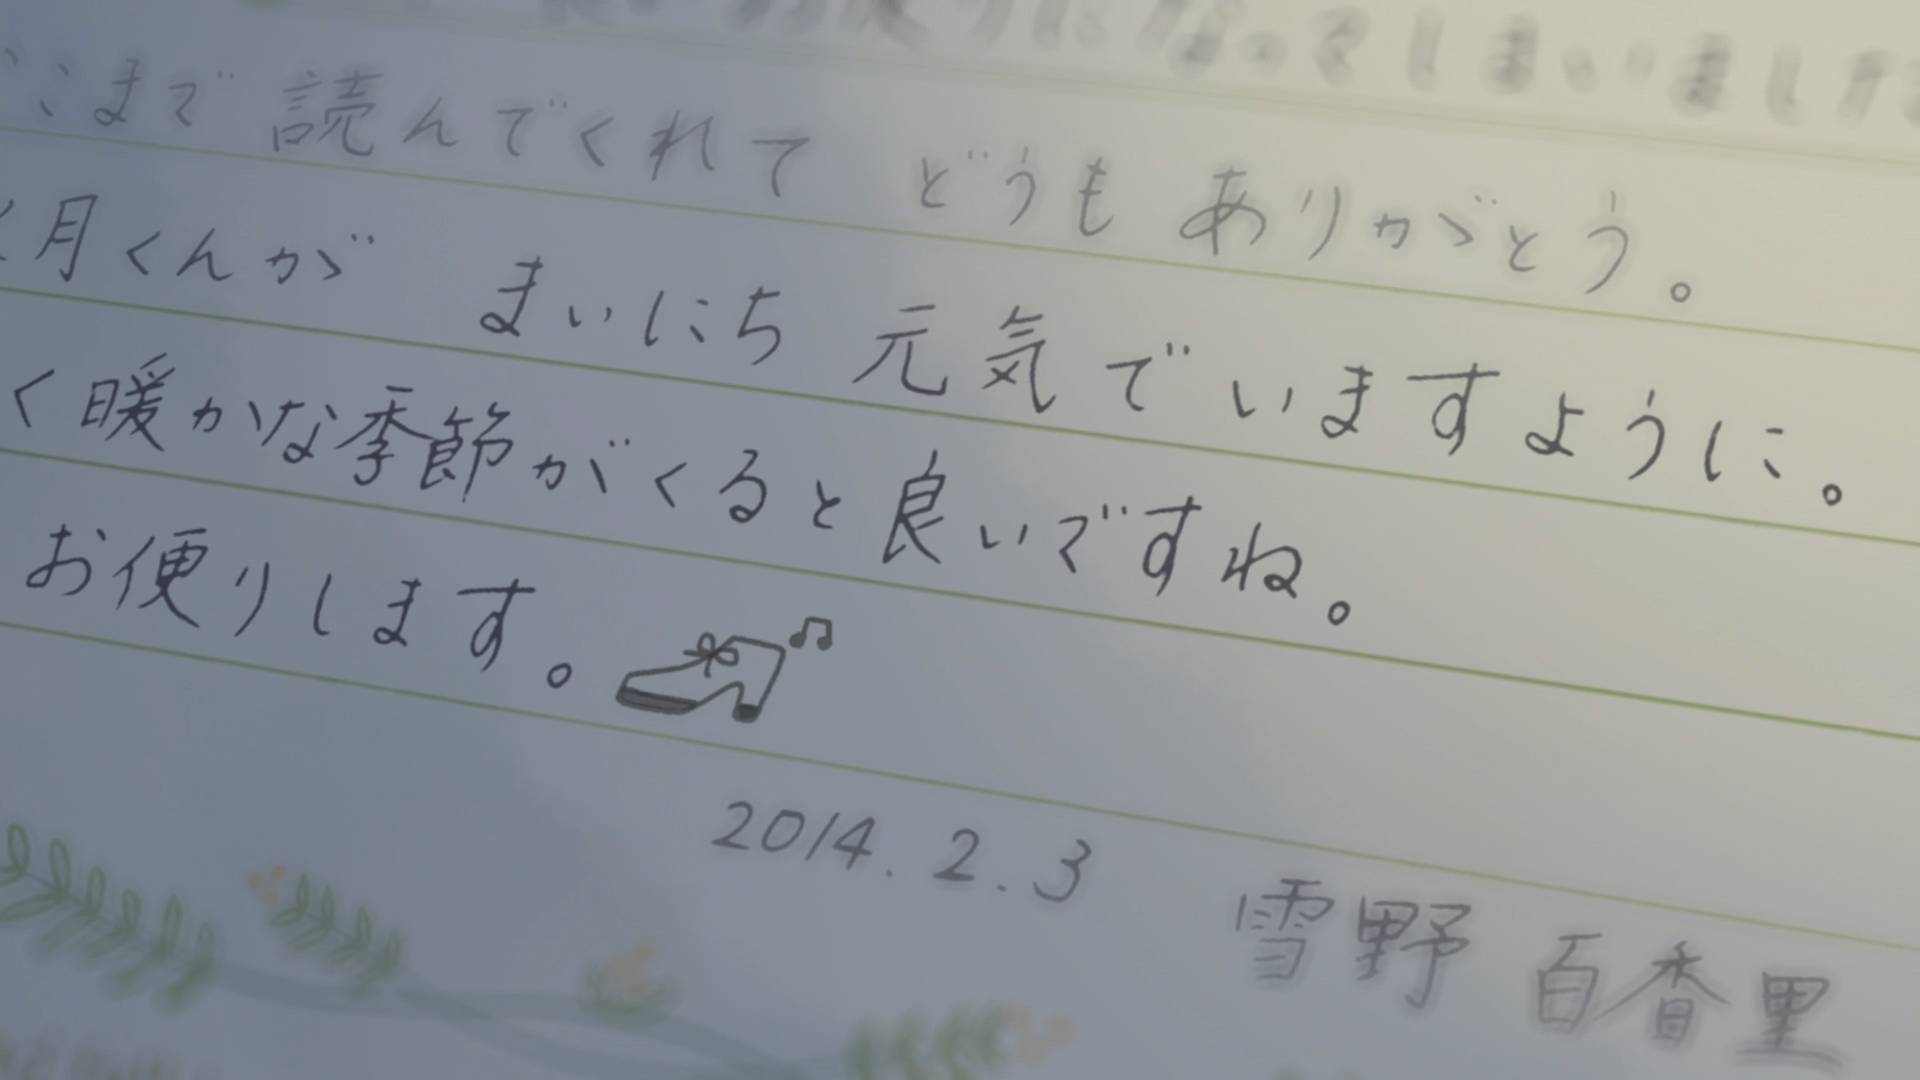 お便りになってしまいました
ここまで 読んでくれて どうも ありがとう。
月くんが まいにち 元気でいますように。
く暖かな季節がくると良いですね。
お便りします。
2014.2.3
雪野 百香里